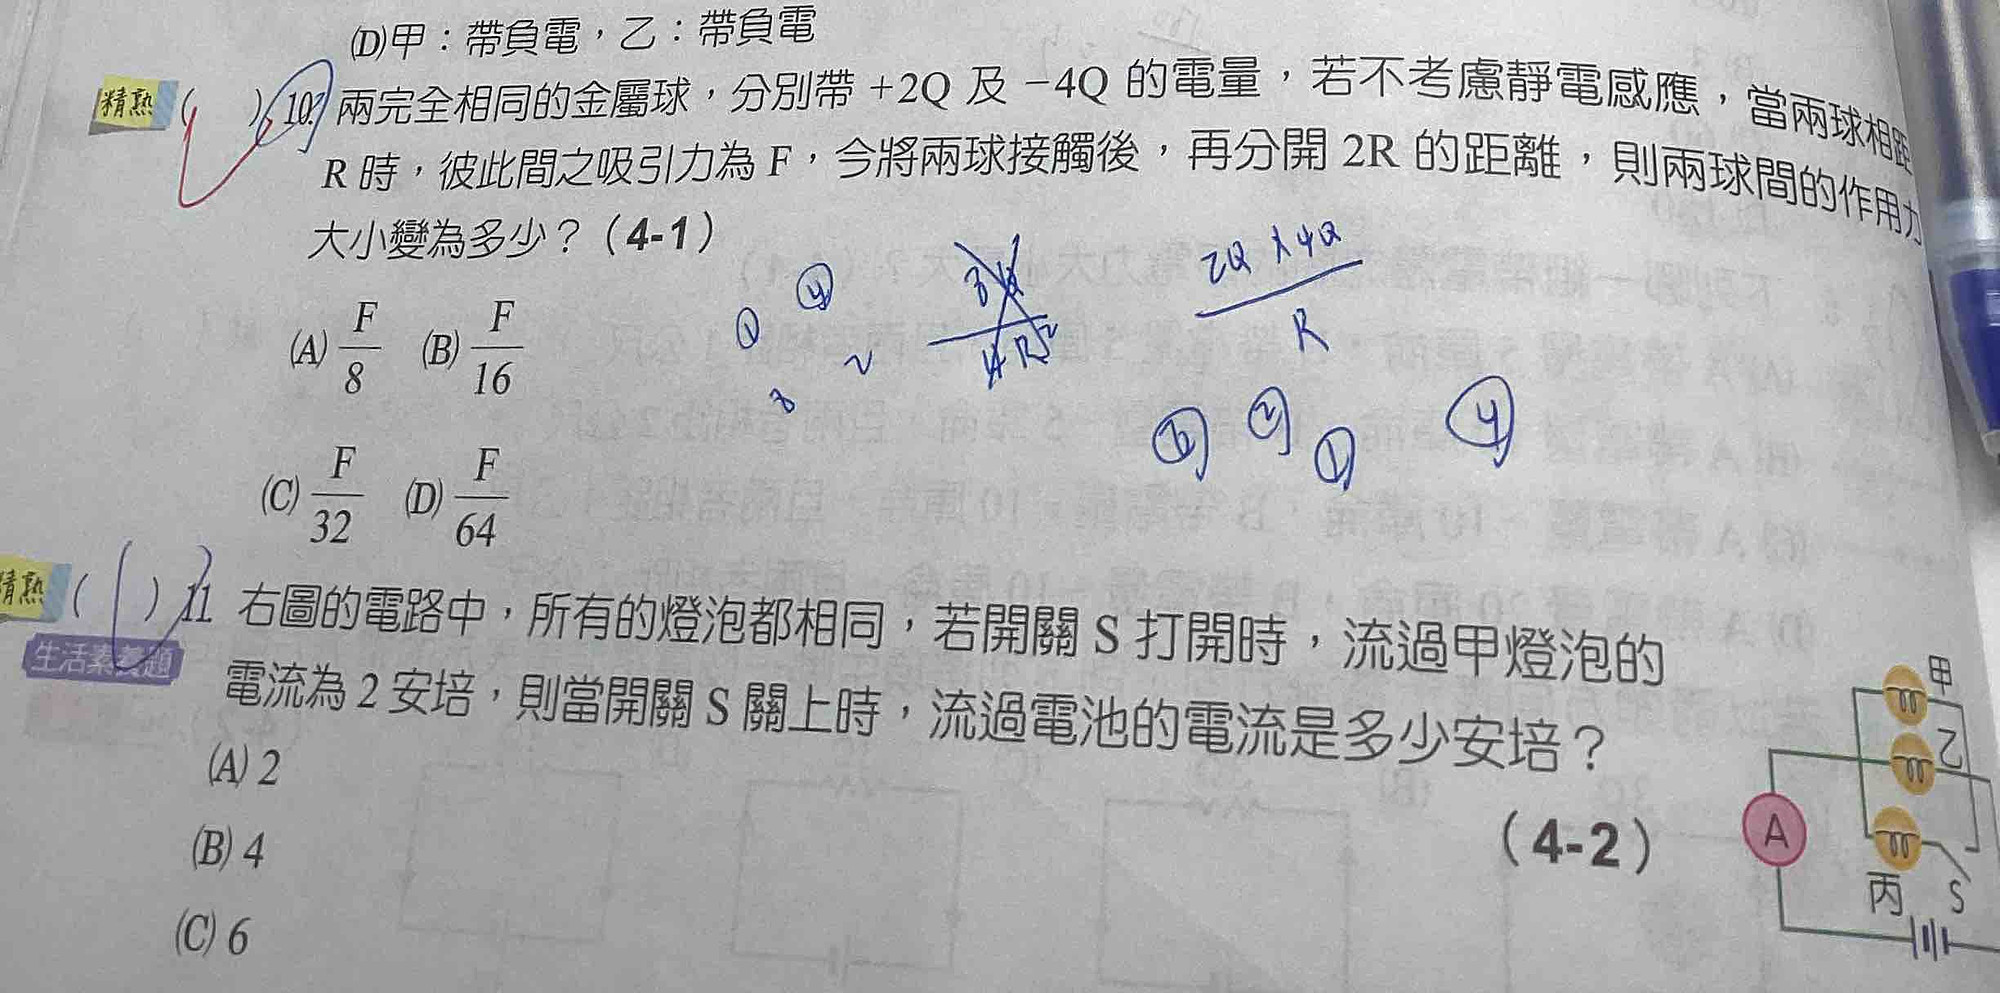 (D)甲：帶負電，乙：帶負電
精熟 ( ) 10. 兩完全相同的金屬球，分別帶 +2Q 及 −4Q 的電量，若不考慮靜電感應，當兩球相距
R 時，彼此間之吸引力為 F，今將兩球接觸後，再分開 2R 的距離，則兩球間的作用力
大小變為多少？（4-1）
2Q×4Q
R
(A) F/8 (B) F/16
(C) F/32 (D) F/64
精熟 ( ) 11. 右圖的電路中，所有的燈泡都相同，若開關 S 打開時，流過甲燈泡的
生活素養題
電流為 2 安培，則當開關 S 關上時，流過電池的電流是多少安培？
（4-2）
(A) 2
(B) 4
(C) 6
甲
乙
A
丙 S